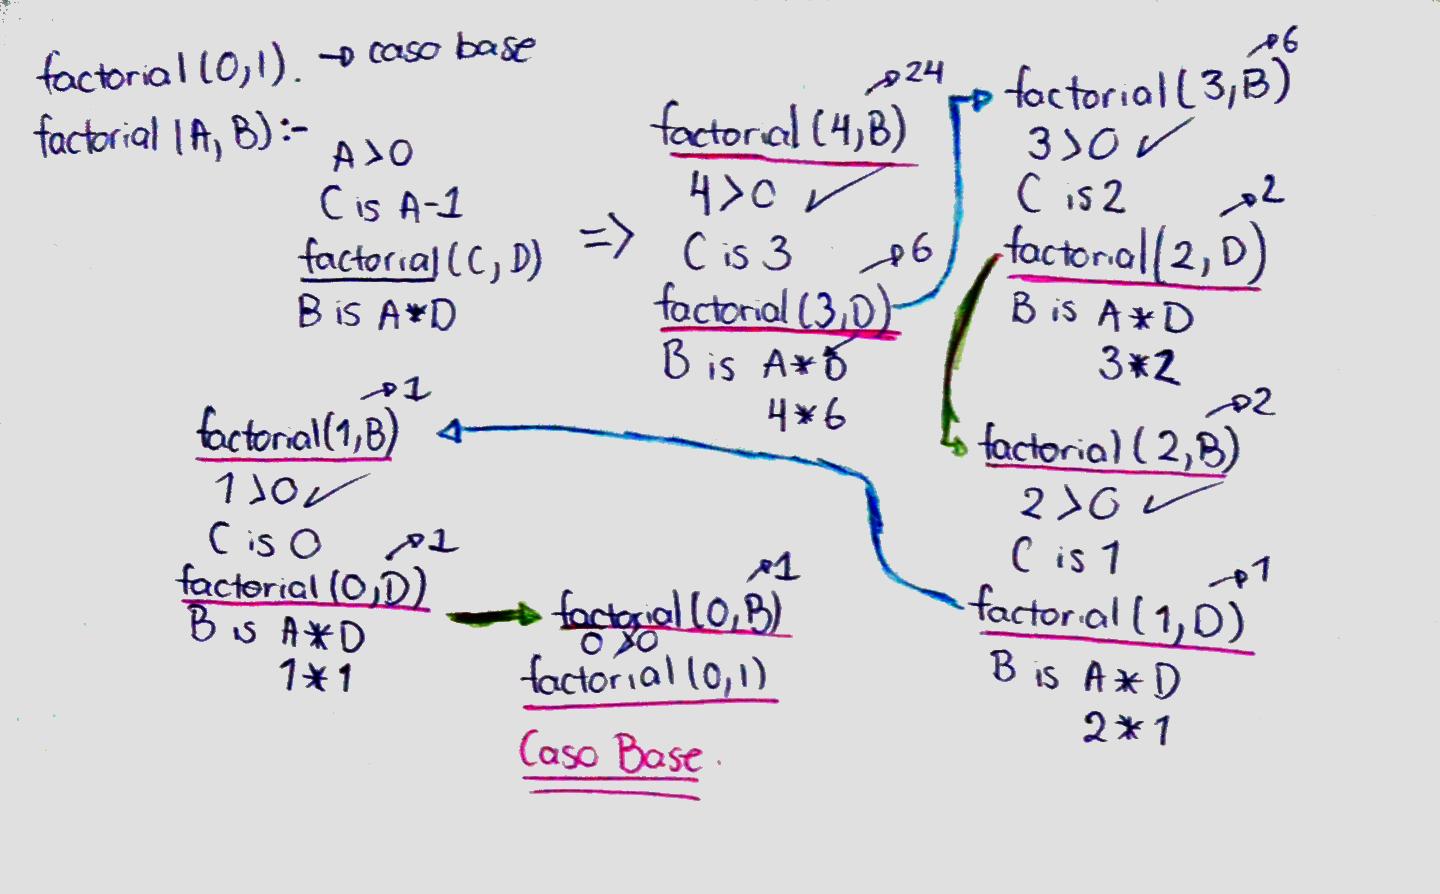 factorial(0,1). → caso base
factorial(A,B):-
A>0
C is A-1
factorial(C,D)
B is A*D
=>
factorial(4,B) → 24
4>0 ✓
C is 3
factorial(3,D) → 6
B is A*D
4*6
factorial(3,B) → 6
3>0 ✓
C is 2
factorial(2,D) → 2
B is A*D
3*2
factorial(2,B) → 2
2>0 ✓
C is 1
factorial(1,D) → 1
B is A*D
2*1
factorial(1,B) → 1
1>0 ✓
C is 0
factorial(0,D) → 1
B is A*D
1*1
factorial(0,B) → 1
0>0
factorial(0,1)
Caso Base.